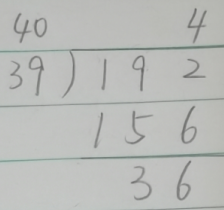 40 4
39 ) 1 9 2
1 5 6
3 6